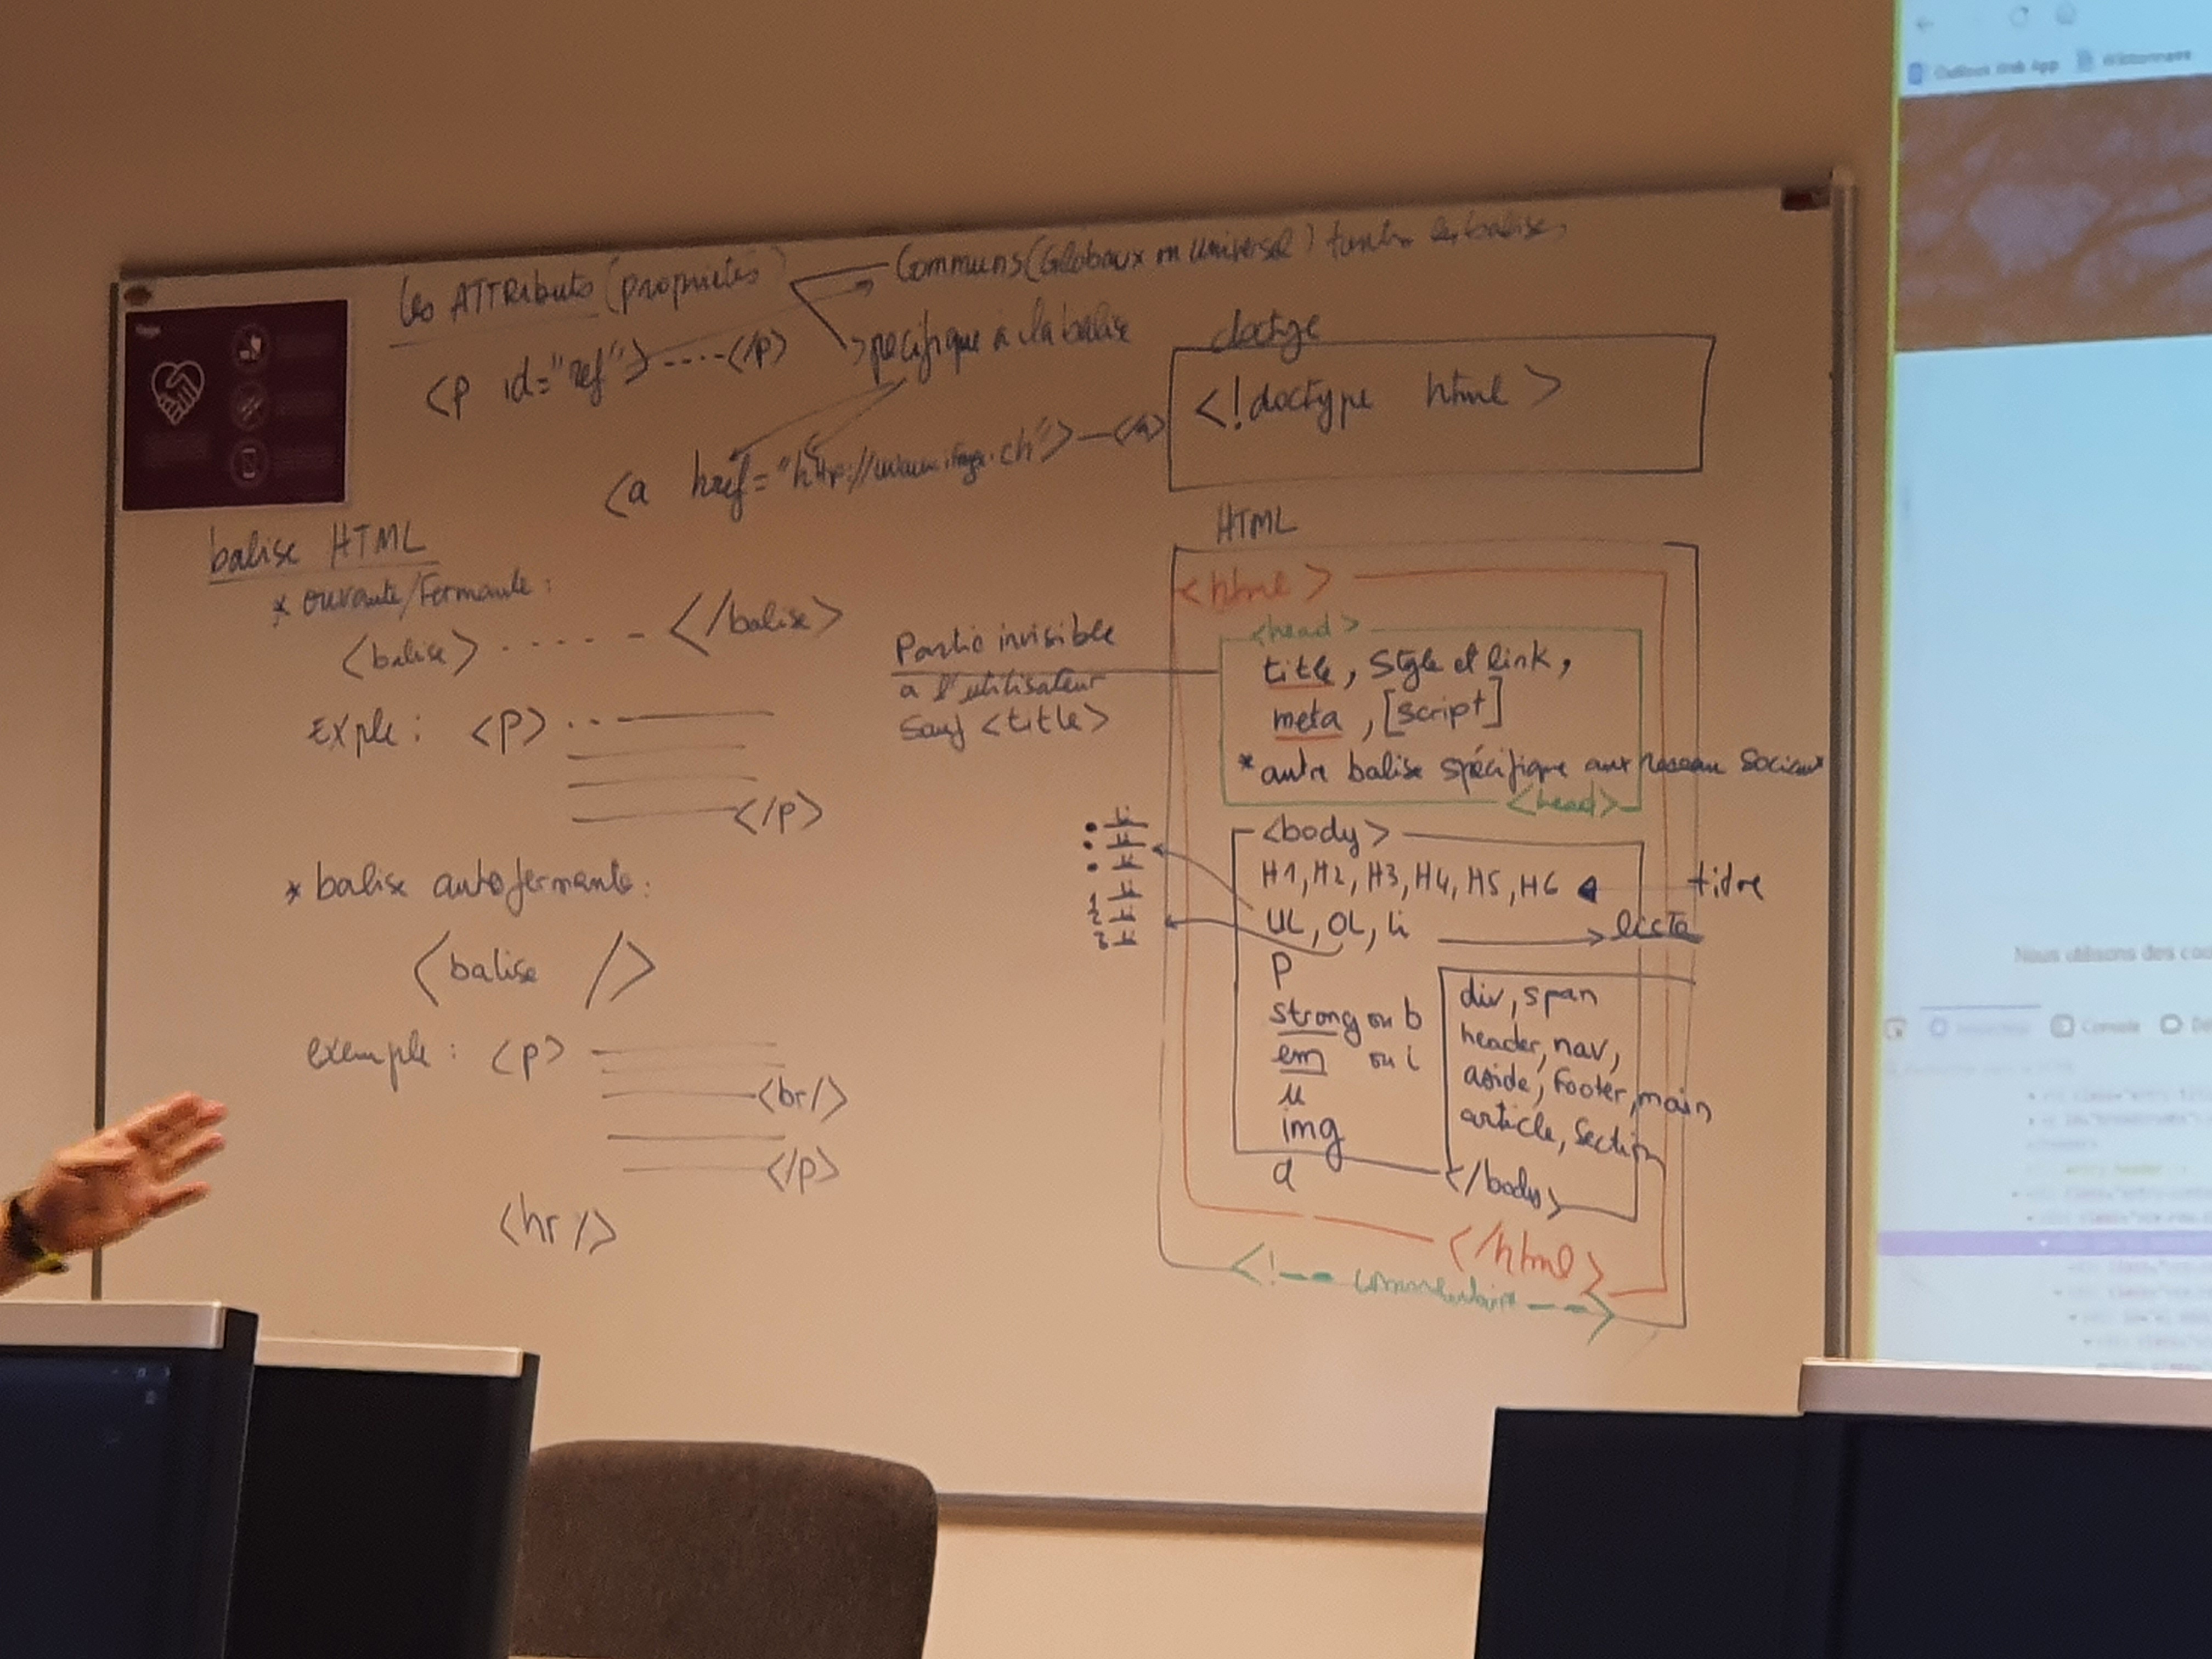 Les ATTRIBUTS (propriétés)
Communs (Globaux ou universel) toutes les balises
spécifique à la balise
<p id="ref"> ----</p>
<a href="http://www.ifage.ch"> — </a>
doctype
<!doctype html >
balise HTML
* ouvrante/Fermante :
<balise> ..... </balise>
Exple : <p> ...
</p>
* balise autofermante :
<balise />
exemple : <p>
<br/>
</p>
<hr/>
HTML
<html >
Partie invisible
a l'utilisateur
Sauf <title>
<head >
title, Style et link,
meta , [script]
* autre balise spécifique aux reseau Sociaux
<head>
<body>
H1, H2, H3, H4, H5, H6
titre
UL, OL, li
liste
• li
• li
• li
1 li
2 li
3 li
P
strong ou b
em ou i
u
img
a
div, span
header, nav,
aside, Footer, main
article, Section
</body>
</html>
<!-- commentaire -->
Outlook Web App
Nous utilisons des coo
Console